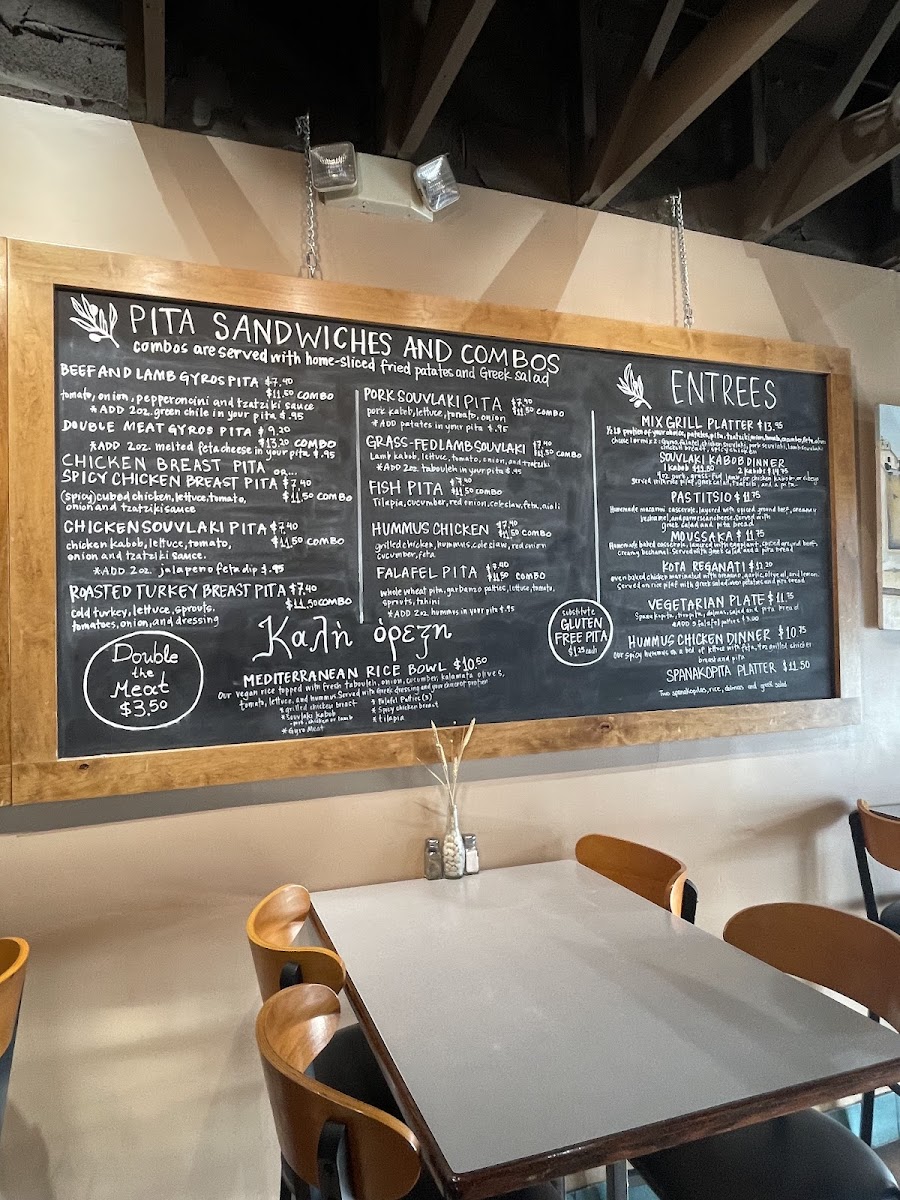 PITA SANDWICHES AND COMBOS
combos are served with home-sliced fried patates and Greek salad
BEEF AND LAMB GYROS PITA $7.40
$11.50 COMBO
tomato, onion, pepperoncini and tzatziki sauce
*ADD 2oz. green chile in your pita $.95
DOUBLE MEAT GYROS PITA $9.20
$13.20 COMBO
*ADD 2oz. melted feta cheese in your pita $.95
CHICKEN BREAST PITA or...
SPICY CHICKEN BREAST PITA $7.40
$11.50 COMBO
(spicy) cubed chicken, lettuce, tomato,
onion and tzatziki sauce
CHICKEN SOUVLAKI PITA $7.40
$11.50 COMBO
chicken kabob, lettuce, tomato,
onion and tzatziki sauce.
*ADD 2oz. jalapeno feta dip $.95
ROASTED TURKEY BREAST PITA $7.40
$11.50 COMBO
cold turkey, lettuce, sprouts,
tomatoes, onion, and dressing
Double
the
Meat
$3.50
PORK SOUVLAKI PITA $7.40
$11.50 COMBO
pork kabob, lettuce, tomato, onion
*ADD patates in your pita $.95
GRASS-FED LAMB SOUVLAKI $7.40
$11.50 COMBO
Lamb kabob, lettuce, tomato, onion, and tzatziki
*ADD 2oz tabouleh in your pita $.95
FISH PITA $7.40
$11.50 COMBO
Tilapia, cucumber, red onion, coleslaw, feta, aioli
HUMMUS CHICKEN $7.40
$11.50 COMBO
grilled chicken, hummus, cole claw, red onion
cucumber, feta
FALAFEL PITA $7.40
$11.50 COMBO
whole wheat pita, garbanzo patties, lettuce, tomato,
sprouts, tahini
*ADD 2oz hummus in your pita $.95
Καλὴ ὀρεξη
MEDITERRANEAN RICE BOWL $10.50
Our vegan rice topped with fresh tabouleh, onion, cucumber, kalamata olives,
tomato, lettuce, and hummus. Served with Greek dressing and your choice of protein
*grilled chicken breast
*souvlaki kabob
-pork, chicken or lamb
*Gyro Meat
*Falafel Patties (3)
*Spicy chicken breast
*tilapia
substitute
GLUTEN
FREE PITA
$1.25 each
ENTREES
MIX GRILL PLATTER $13.95
SOUVLAKI KABOB DINNER
1 kabob $11.50 2 kabobs $14.75
PASTITSIO $11.75
Homemade macaroni casserole, layered with spiced ground beef, creamy
bechamel, and parmesan cheese. Served with
greek salad and pita bread
MOUSSAKA $11.75
Homemade baked casserole, layered with eggplant, spiced ground beef,
creamy bechamel. Served with greek salad and a pita bread
KOTA REGANATI $11.20
oven baked chicken marinated with oregano, garlic, olive oil, and lemon.
Served on rice pilaf with greek salad, oven potatoes and pita bread
VEGETARIAN PLATE $11.75
HUMMUS CHICKEN DINNER $10.75
SPANAKOPITA PLATTER $11.50
Two spanakopitas, rice, dolmas and greek salad